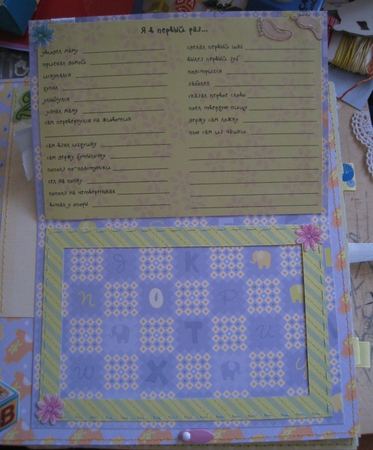 Я в первый раз...
увидел маму
приехал домой
искупался
улыбнулся
узнал маму
сам перевернулся на животик
сам взял игрушку
сам держу бутылочку
ползу по-пластунски
сел на попку
ползу на четвереньках
встал у опоры
сделал первый шаг
вылез первый зуб
постригся
заболел
сказал первое слово
поел твердую пищу
держу сам ложку
пью сам из чашки
K
n O P
T u
w X